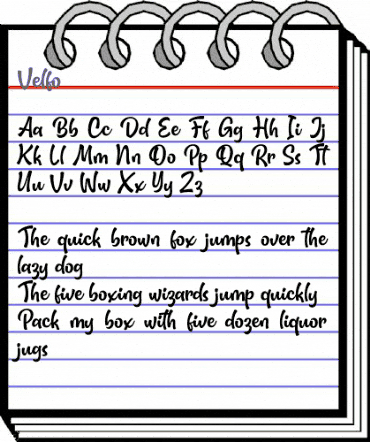 Velfo
Aa Bb Cc Dd Ee Ff Gg Hh Ii Jj
Kk Ll Mm Nn Oo Pp Qq Rr Ss Tt
Uu Vv Ww Xx Yy Zz
The quick brown fox jumps over the
lazy dog
The five boxing wizards jump quickly
Pack my box with five dozen liquor
jugs